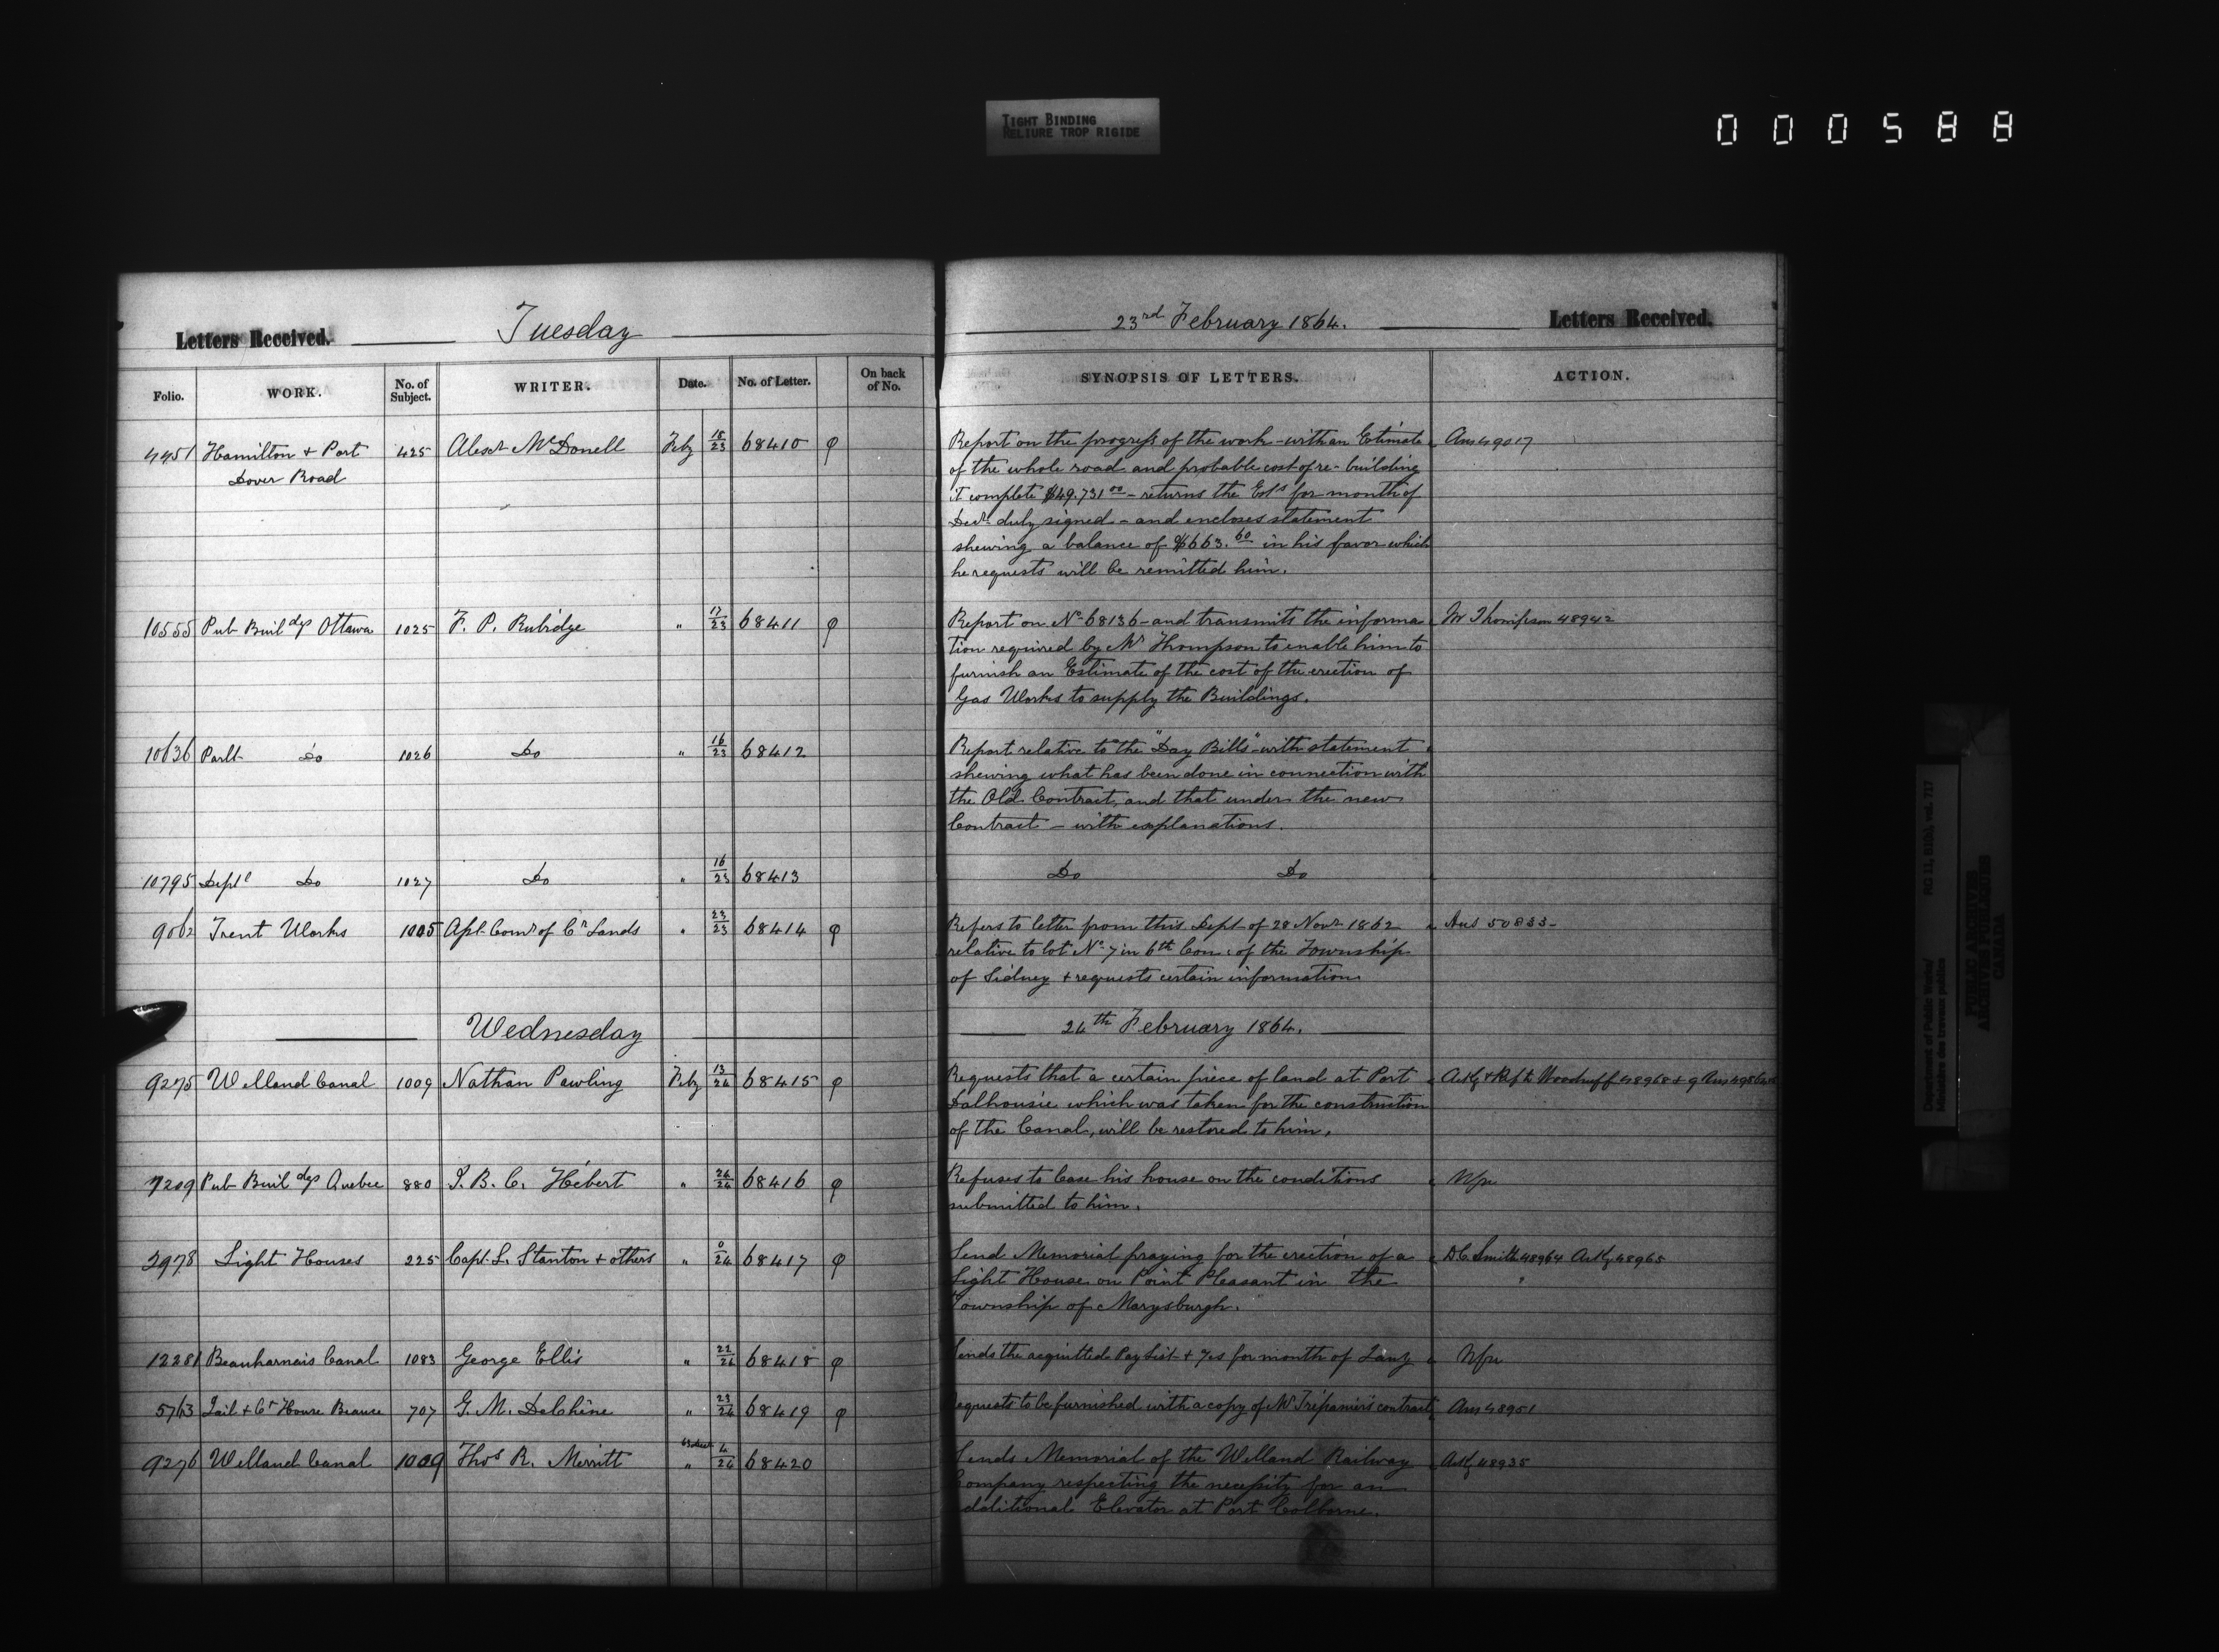 TIGHT BINDING
RELIURE TROP RIGIDE
000588
Letters Received. Tuesday
Folio. WORK. No. of Subject. WRITER. Date. No. of Letter. On back of No.
4451 Hamilton + Port 425 Alexr McDonell Feby 18/23 68410 φ
Dover Road
10555 Pub Buildgs Ottawa 1025 F. P. Rubidge " 17/23 68411 φ
10636 Parlt Do 1026 Do " 16/23 68412
10795 Deptl Do 1027 Do " 16/23 68413
9062 Trent Works 1005 Asst Comr of Cn Lands " 23/23 68414 φ
Wednesday
9275 Welland Canal 1009 Nathan Pawling Feby 13/24 68415 φ
7209 Pub Buildgs Quebec 880 J. B. C. Hébert " 24/24 68416 φ
2978 Light Houses 225 Capt. L. Stanton + others " 0/24 68417 φ
12281 Beauharnais Canal 1083 George Ellis " 22/24 68418 φ
5763 Jail + Ct House Beauce 707 G. M. Delchêne " 23/24 68419 φ
9276 Welland Canal 1009 Thos R. Merritt " 4/24 68420
23rd February 1864. Letters Received.
SYNOPSIS OF LETTERS. ACTION.
Report on the progress of the work - with an Estimate Ans 49017
of the whole road and probable cost of re-building
it complete $49.731 00 - returns the Ests for month of
Decr duly signed - and encloses statement
shewing a balance of $663.60 in his favor which
he requests will be remitted him.
Report on No 68136 - and transmits the informa Mr Thompson 48942
tion required by Mr Thompson to enable him to
furnish an Estimate of the cost of the erection of
Gas Works to supply the Buildings.
Report relative to the "Day Bills" - with statement
shewing what has been done in connection with
the Old Contract, and that under the new
Contract - with explanations.
Do Do
Refers to letter from this Dept of 28 Novr 1862 Ans 50833-
relative to lot No 7 in 6th Con: of the Township
of Sidney + requests certain information
24th February 1864.
Requests that a certain piece of land at Port Ackg + Reft Woodruff 48968 + 9 Ans
Dalhousie which was taken for the construction
of the Canal, will be restored to him.
Refuses to lease his house on the conditions Nfu
submitted to him.
Send Memorial praying for the erection of a DC Smith 48964 Ackg 48965
Light House on Point Pleasant in the
Township of Marysburgh.
Sends the acquitted Pay List + for month of Jany Nfu
Requests to be furnished with a copy of Mr Trépanier's contract Ans 48951
Sends Memorial of the Welland Railway Ackg 48935
Company respecting the necessity for an
additional Elevator at Port Colborne.
Department of Public Works/ RG 11, B1(a), vol. 717
Ministère des Travaux publics
PUBLIC ARCHIVES
ARCHIVES PUBLIQUES
CANADA